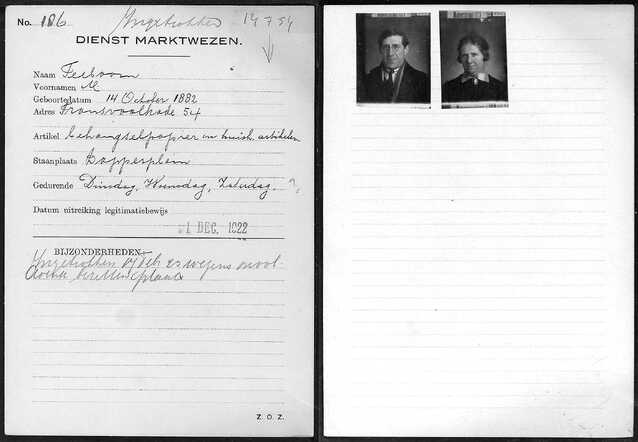 No. 186 Ingetrokken 14 7 54
DIENST MARKTWEZEN.
Naam Feeboom
Voornamen M
Geboortedatum 14 October 1882
Adres Transvaalkade 54
Artikel behangselpapier en huish. artikelen
Staanplaats Dapperplein
Gedurende Dinsdag, Woensdag, Zaterdag. ?
Datum uitreiking legitimatiebewijs
1 DEC. 1922
BIJZONDERHEDEN
Ingetrokken wegens
plaats
Z. O. Z.